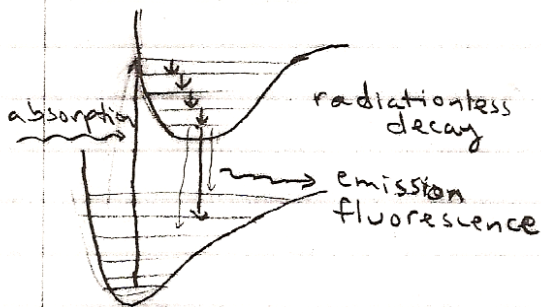 absorption
radiationless
decay
emission
fluorescence